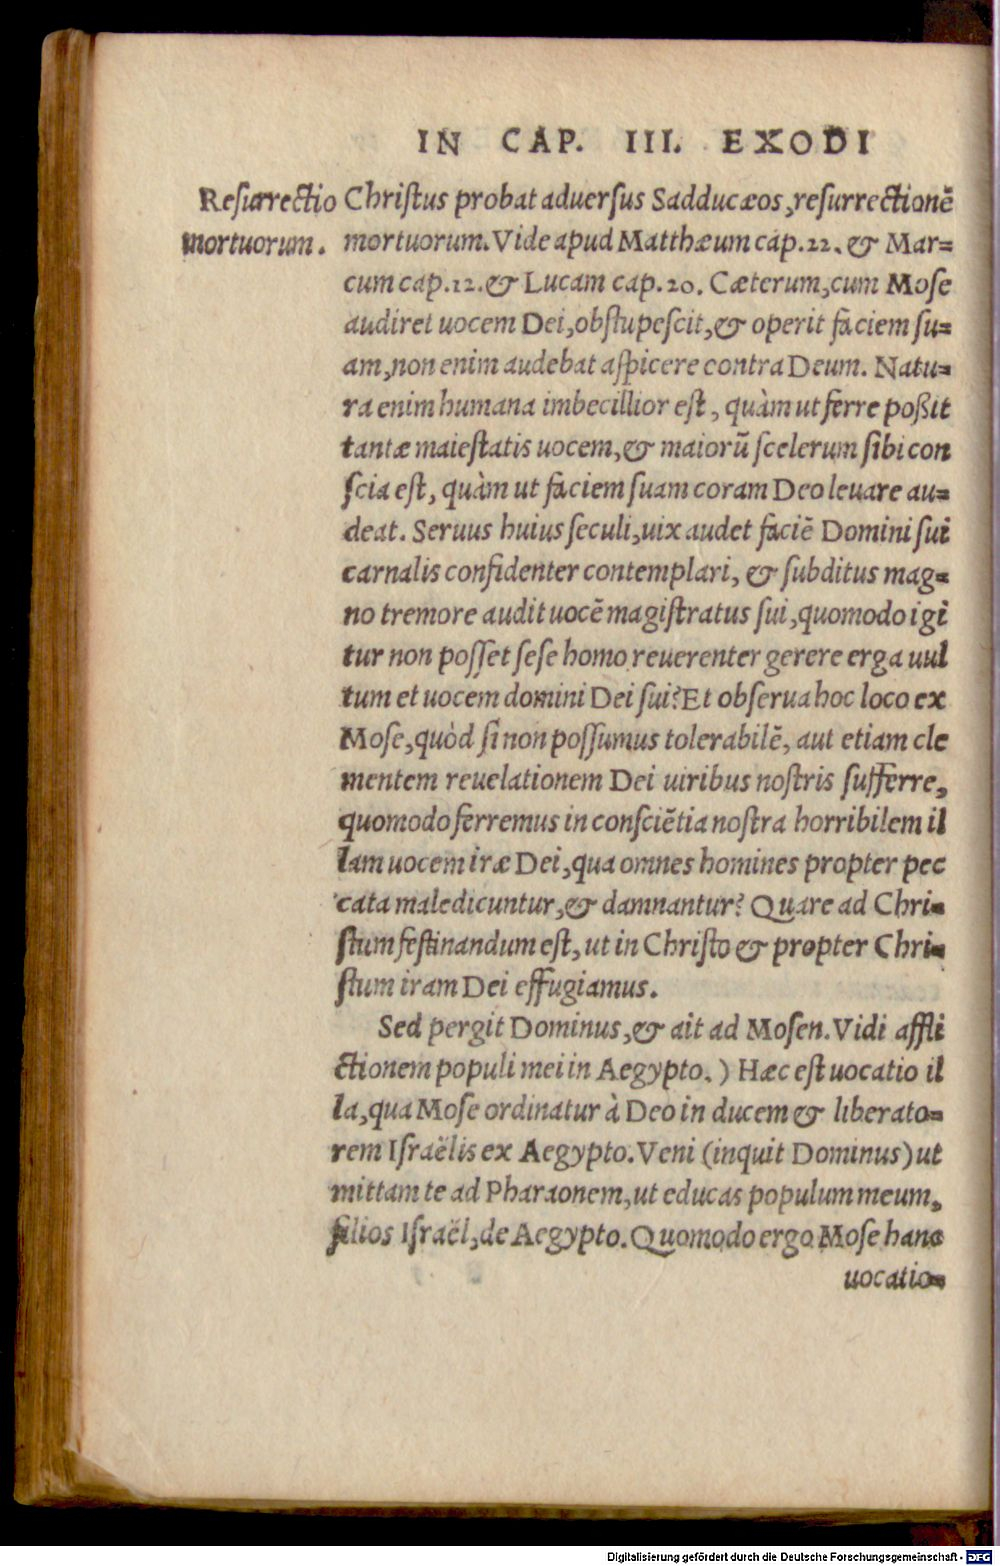 IN CAP. III. EXODI
Resurrectio
mortuorum.
Christus probat aduersus Sadducæos, resurrectionē
mortuorum. Vide apud Matthæum cap. 22. & Mar-
cum cap. 12. & Lucam cap. 20. Cæterum, cum Mose
audiret uocem Dei, obstupescit, & operit faciem su-
am, non enim audebat aspicere contra Deum. Natu-
ra enim humana imbecillior est, quàm ut ferre poßit
tantæ maiestatis uocem, & maiorū scelerum sibi con
scia est, quàm ut faciem suam coram Deo leuare au-
deat. Seruus huius seculi, uix audet faciē Domini sui
carnalis confidenter contemplari, & subditus mag-
no tremore audit uocē magistratus sui, quomodo igi
tur non posset sese homo reuerenter gerere erga uul
tum et uocem domini Dei sui? Et obserua hoc loco ex
Mose, quòd si non possumus tolerabilē, aut etiam cle
mentem reuelationem Dei uiribus nostris sufferre,
quomodo ferremus in consciētia nostra horribilem il
lam uocem iræ Dei, qua omnes homines propter pec
cata maledicuntur, & damnantur? Quare ad Chri-
stum festinandum est, ut in Christo & propter Chri-
stum iram Dei effugiamus.
Sed pergit Dominus, & ait ad Mosen. Vidi affli
ctionem populi mei in Aegypto. ) Hæc est uocatio il
la, qua Mose ordinatur à Deo in ducem & liberato-
rem Israëlis ex Aegypto. Veni (inquit Dominus) ut
mittam te ad Pharaonem, ut educas populum meum,
filios Israël, de Aegypto. Quomodo ergo Mose hanc
uocatio-
Digitalisierung gefördert durch die Deutsche Forschungsgemeinschaft - DFG